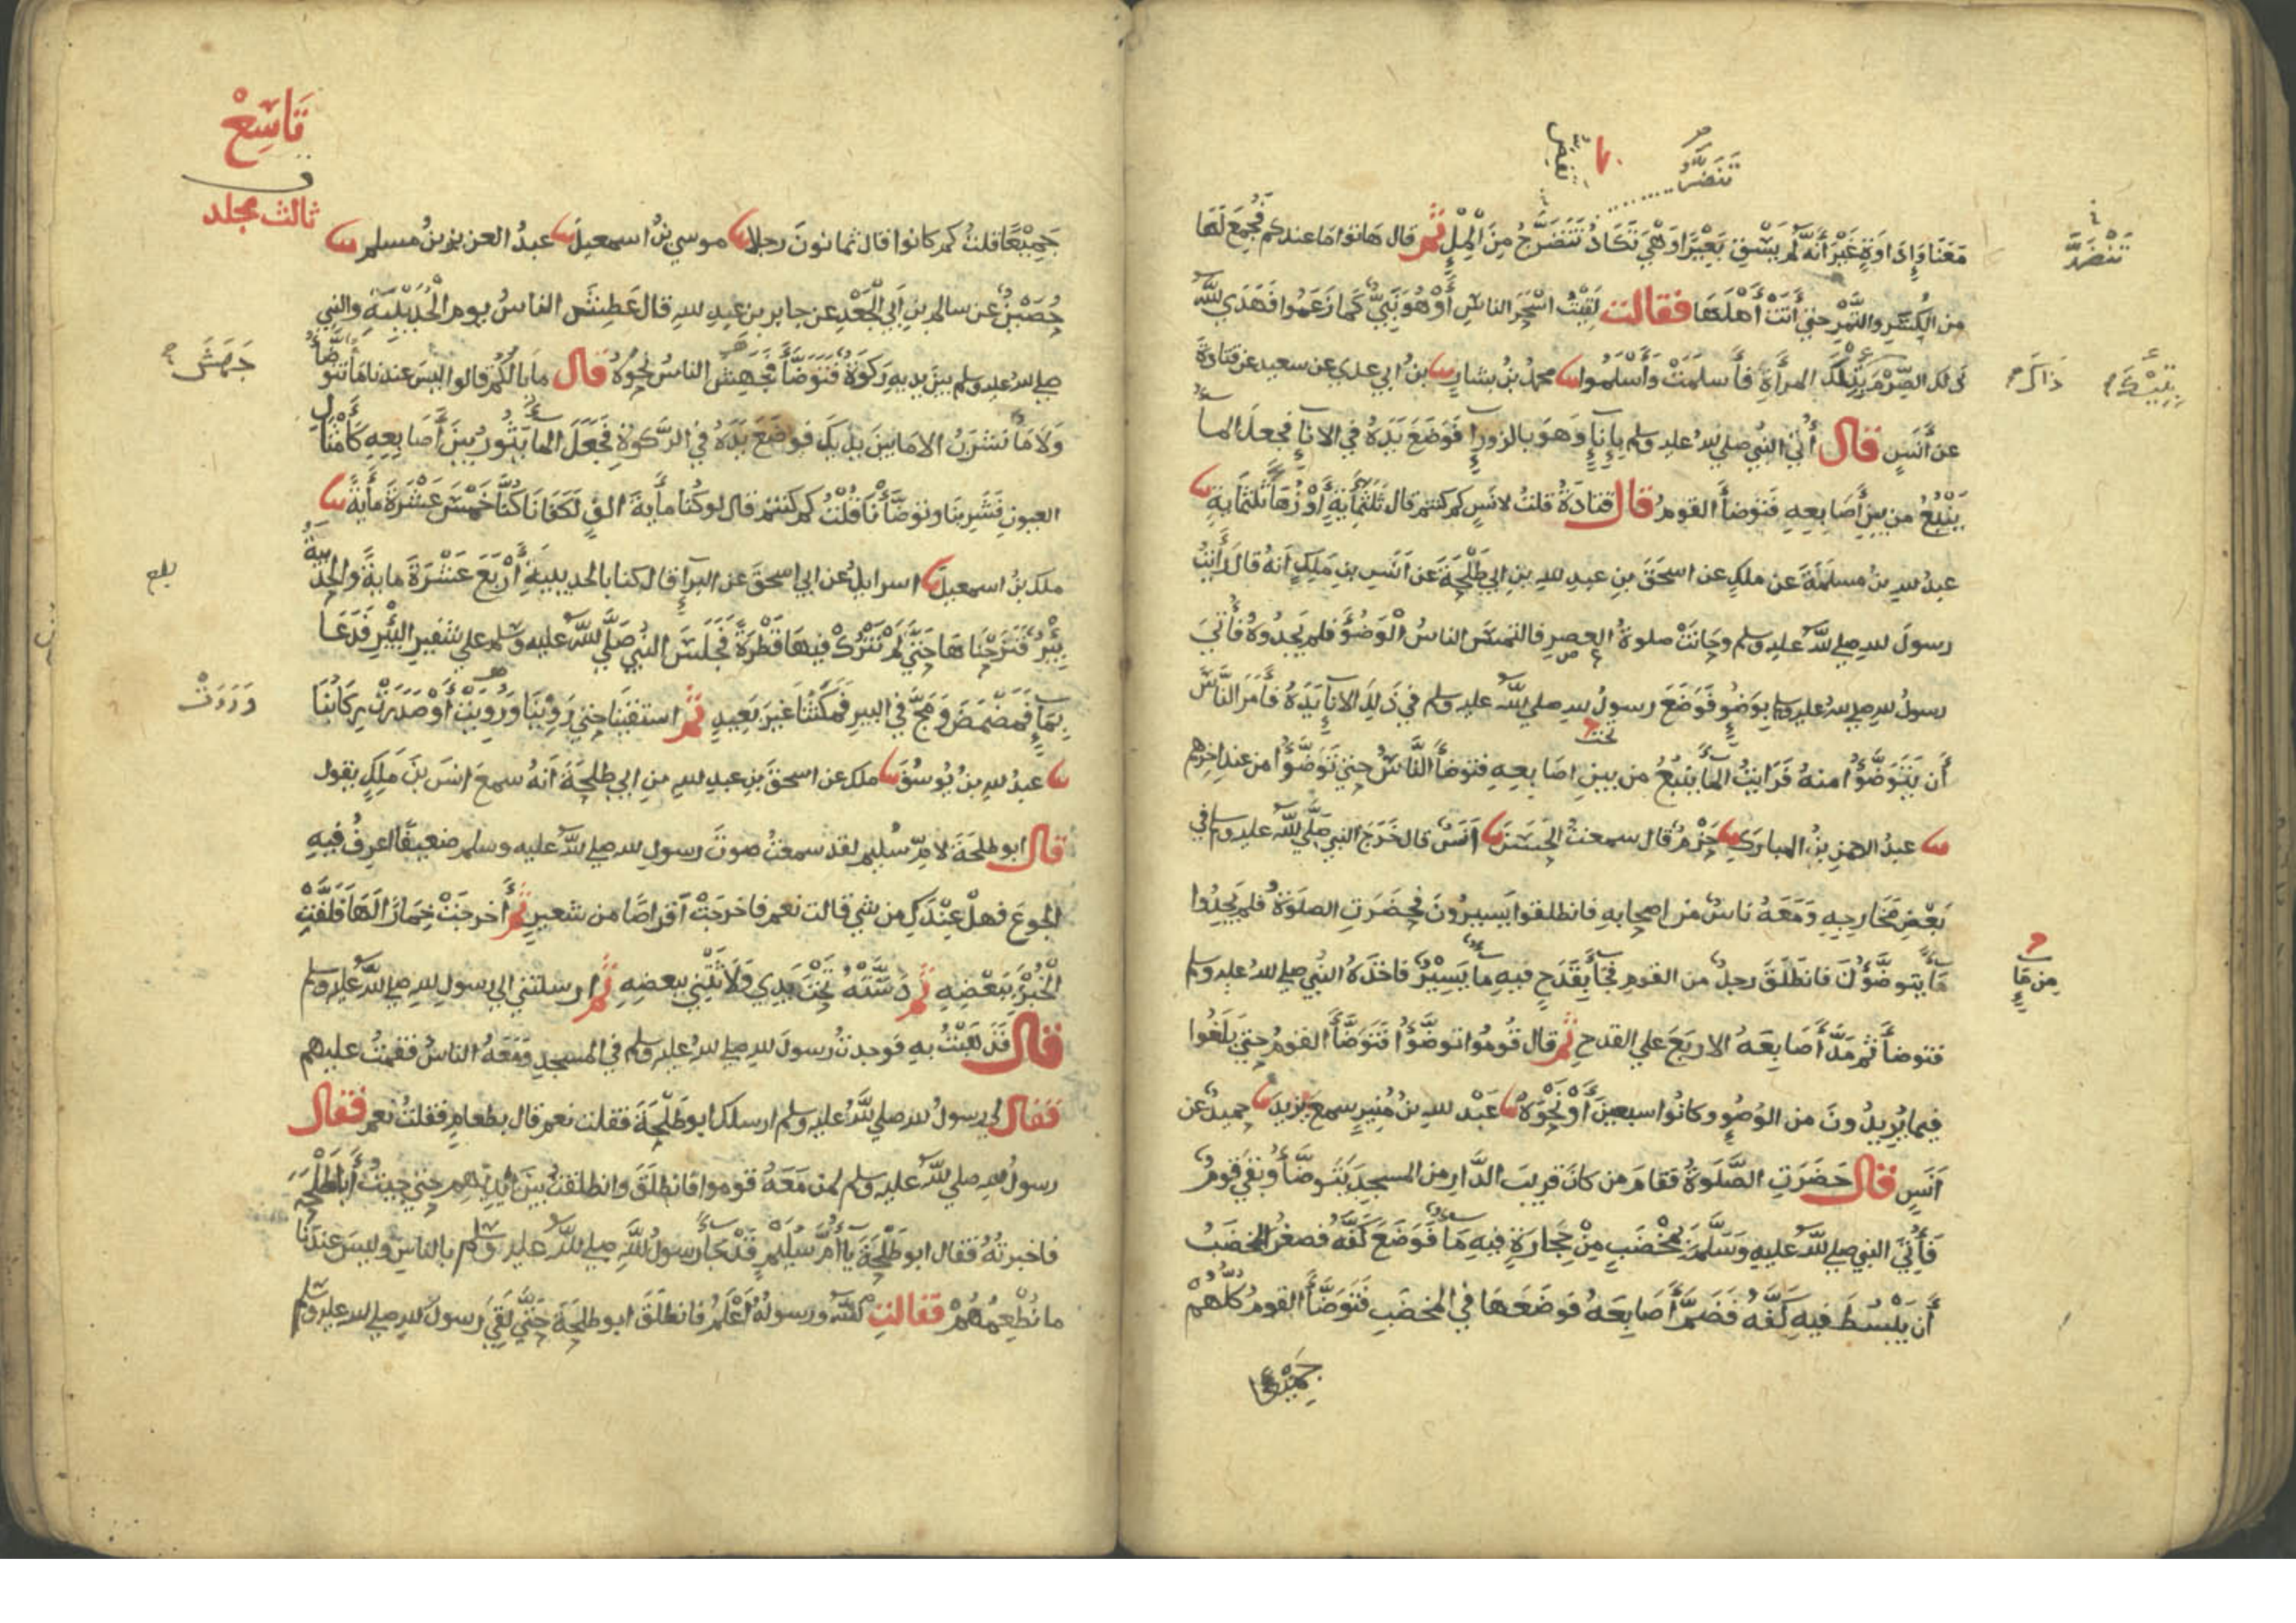 تنضر
تبض
معنا واداوة غير أنه لم يسق بعيرا وهي تكاد تنضرج من الملء ثم قال هاتوا ما عندكم فجمع لها
تنضر
من الكسر والتمر حتى أتت أهلها فقالت لقيت اسحر الناس أو هو نبي كما زعموا فهدى الله
ذلك الصرم بتلك المرأة فأسلمت وأسلموا محمد بن بشار بن ابي عدي عن سعيد عن قتادة
ذاك
عن أنس قال أتي النبي صلى الله عليه وسلم بإناء وهو بالزوراء فوضع يده في الاناء فجعل الماء
ينبع من بين أصابعه فتوضأ القوم قال قتادة قلت لانس كم كنتم قال ثلثمائة أو زهاء ثلثمائة
عبد الله بن مسلمة عن ملك عن اسحق بن عبد الله بن ابي طلحة عن انس بن ملك انه قال رأيت
رسول الله صلى الله عليه وسلم وحانت صلوة العصر فالتمس الناس الوضوء فلم يجدوه فأتي
رسول الله صلى الله عليه وسلم بوضوء فوضع رسول الله صلى الله عليه وسلم في ذلك الاناء يده فأمر الناس
تحت
أن يتوضؤا منه فرايت الماء ينبع من بين اصابعه فتوضأ الناس حتى توضؤا من عند اخرهم
عبد الرحمن بن المبارك حزم قال سمعت الحسن أنس قال خرج النبي صلى الله عليه وسلم في
بعض مخارجه ومعه ناس من اصحابه فانطلقوا يسيرون فحضرت الصلوة فلم يجدوا
ماء يتوضؤن فانطلق رجل من القوم فجاء بقدح فيه ماء يسير فاخذه النبي صلى الله عليه وسلم
من ماء
فتوضأ ثم مد أصابعه الاربع على القدح ثم قال قوموا توضؤا فتوضأ القوم حتى بلغوا
فيما يريدون من الوضوء وكانوا سبعين أو نحوه عبد الله بن منير سمع يزيد حميد عن
أنس قال حضرت الصلوة فقام من كان قريب الدار من المسجد يتوضأ وبقي قوم
فأتي النبي صلى الله عليه وسلم بمخضب من حجارة فيه ماء فوضع كفه فصغر المخضب
أن يبسط فيه كفه فضم أصابعه فوضعها في المخضب فتوضأ القوم كلهم
جميعا
تاسع
ثالث مجلد
جميعا قلت كم كانوا قال ثمانون رجلا موسى بن اسمعيل عبد العزيز بن مسلم
حصين عن سالم بن أبي الجعد عن جابر بن عبد الله قال عطش الناس يوم الحديبية والنبي
صلى الله عليه وسلم بين يديه ركوة فتوضأ فجهش الناس نحوه قال ما لكم قالوا ليس عندنا ماء نتوضأ
جهش
ولا ماء نشرب الا ما بين يديك فوضع يده في الركوة فجعل الماء يثور بين أصابعه كأمثال
العيون فشربنا وتوضأنا قلت كم كنتم قال لو كنا مائة الف لكفانا كنا خمس عشرة مائة
ملك بن اسمعيل اسرايل عن ابي اسحق عن البراء قال كنا بالحديبية أربع عشرة مائة والحديبية
بلع
بئر فنزحناها حتى لم نترك فيها قطرة فجلس النبي صلى الله عليه وسلم على شفير البئر فدعا
بماء فمضمض ومج في البير فمكثنا غير بعيد ثم استقينا حتى روينا ورويت أو صدرت ركائبنا
وردت
عبد الله بن يوسف ملك عن اسحق بن عبد الله بن ابي طلحة أنه سمع انس بن ملك يقول
قال ابو طلحة لام سليم لقد سمعت صوت رسول الله صلى الله عليه وسلم ضعيفا اعرف فيه
الجوع فهل عندك من شي قالت نعم فاخرجت أقراصا من شعير ثم أخرجت خمارا لها فلفت
الخبز ببعضه ثم دسته تحت يدي ولاثتني ببعضه ثم ارسلتني الى رسول الله صلى الله عليه وسلم
قال فذهبت به فوجدت رسول الله صلى الله عليه وسلم في المسجد ومعه الناس فقمت عليهم
فقال لي رسول الله صلى الله عليه وسلم ارسلك ابو طلحة فقلت نعم قال بطعام فقلت نعم فقال
رسول الله صلى الله عليه وسلم لمن معه قوموا فانطلق وانطلقت بين ايديهم حتى جيت أبا طلحة
فاخبرته فقال ابو طلحة يا أم سليم قد جاء رسول الله صلى الله عليه وسلم بالناس وليس عندنا
ما نطعمهم فقالت الله ورسوله أعلم فانطلق ابو طلحة حتى لقي رسول الله صلى الله عليه وسلم